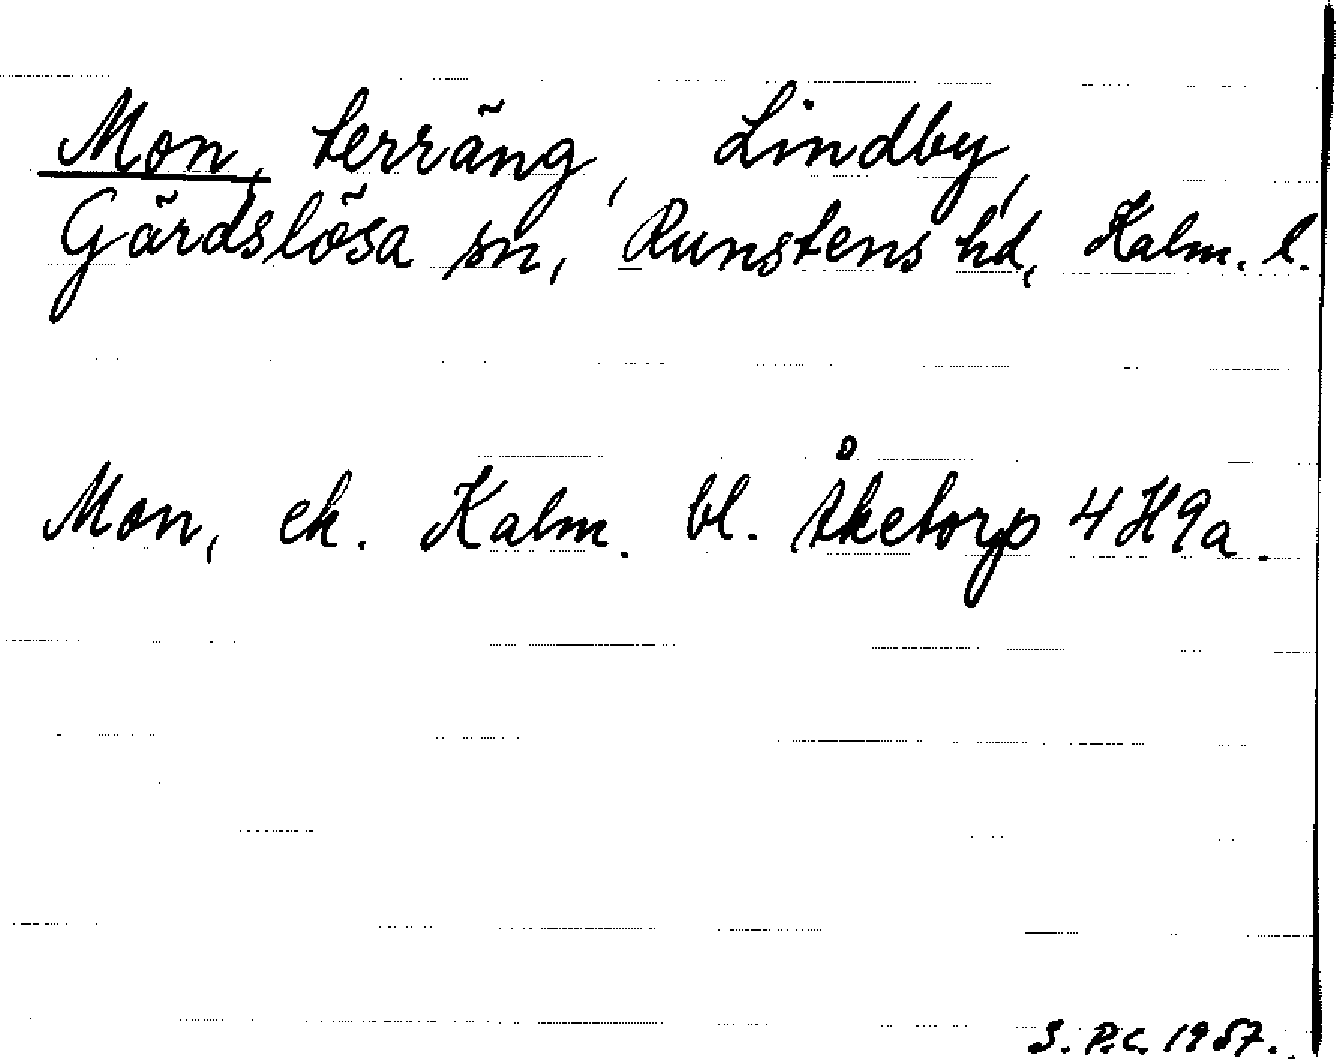 Mon, terräng, Lindby,
Gärdslösa sn, Runstens hd, Kalm. l.
Mon, ek. Kalm. bl. Åketorp 4H9a.
S. P.C. 1957.